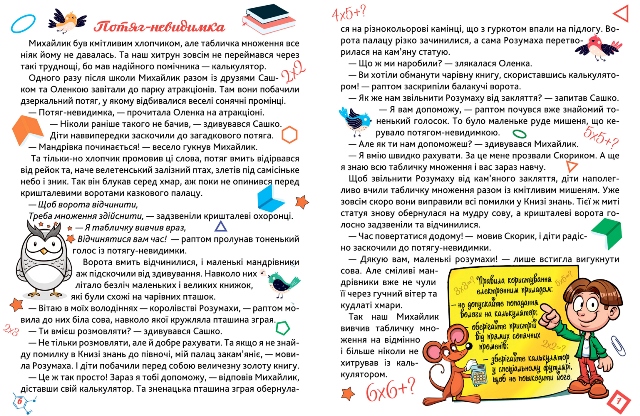 Потяг-невидимка
Михайлик був кмітливим хлопчиком, але табличка множення все
ніяк йому не давалась. Та наш хитрун зовсім не переймався через
такі труднощі, бо мав надійного помічника — калькулятор.
Одного разу після школи Михайлик разом із друзями Саш-
ком та Оленкою завітали до парку атракціонів. Там вони побачили
дзеркальний потяг, у якому відбивалися веселі сонячні промінці.
— Потяг-невидимка, — прочитала Оленка на атракціоні.
— Ніколи раніше такого не бачив, — здивувався Сашко.
Діти навипередки заскочили до загадкового потяга.
— Мандрівка починається! — весело гукнув Михайлик.
Та тільки-но хлопчик промовив ці слова, потяг вмить відірвався
від рейок та, наче велетенський залізний птах, злетів під самісіньке
небо і зник. Так він блукав серед хмар, аж поки не опинився перед
кришталевими воротами казкового палацу.
— Щоб ворота відчинити,
Треба множення здійснити, — задзвеніли кришталеві охоронці.
— Я табличку вивчив враз,
Відчиняться вам час! — раптом пролунав тоненький
голос із потягу-невидимки.
Ворота вмить відчинились, і маленькі мандрівники
аж підскочили від здивування. Навколо них
літало безліч маленьких і великих книжок,
які були схожі на чарівних пташок.
— Вітаю в моїх володіннях — королівстві Розумахи, — раптом мо-
вила до них біла сова, навколо якої кружляла пташина зграя.
— Ти вмієш розмовляти? — здивувався Сашко.
— Не тільки розмовляти, але й добре рахувати. Та якщо я не знай-
ду помилку в Книзі знань до півночі, мій палац закам'яніє, — мови-
ла Розумаха. І діти побачили перед собою величезну золоту книгу.
— Це ж так просто! Зараз я тобі допоможу, — відповів Михайлик,
діставши свій калькулятор. Та зненацька пташина зграя обернула-
2x2
2x2
6
4x5+?
ся на різнокольорові камінці, що з гуркотом впали на підлогу. Во-
рота палацу різко зачинилися, а сама Розумаха перетво-
рилася на кам'яну статую.
— Що ж ми наробили? — злякалася Оленка.
— Ви хотіли обманути чарівну книгу, скориставшись калькулято-
ром! — раптом заскрипіли балакучі ворота.
— Як же нам звільнити Розумаху від закляття? — запитав Сашко.
— Я вам допоможу, — раптом почувся вже знайомий то-
ненький голосок. То було маленьке руде мишеня, що ке-
рувало потягом-невидимкою.
— Але як ти нам допоможеш? — здивувався Михайлик.
— Я вмію швидко рахувати. За це мене прозвали Скориком. А ще
я знаю всю табличку множення і вас зараз навчу.
Щоб звільнити Розумаху від кам'яного закляття, діти наполег-
ливо вчили табличку множення разом із кмітливим мишеням. Уже
зовсім скоро вони виправили всі помилки у Книзі знань. Тієї ж миті
статуя знову обернулася на мудру сову, а кришталеві ворота го-
лосно задзвеніли та відчинилися.
— Час повертатися додому! — мовив Скорик, і діти радіс-
но заскочили до потягу-невидимки.
— Дякую вам, маленькі розумахи! — лише встигла вигукнути
сова. Але сміливі ман-
дрівники вже не чули
її через гучний вітер та
кудлаті хмари.
Так наш Михайлик
вивчив табличку мно-
ження на відмінно
і більше ніколи не
хитрував із каль-
кулятором.
5x5+?
6x6+?
Правила користування
електронним приладом:
— не допускайте попадання
вологи на калькулятор;
— оберігайте пристрій
від прямих сонячних
променів;
— зберігайте калькулятор
у спеціальному футлярі,
щоб не пошкодити його.
7